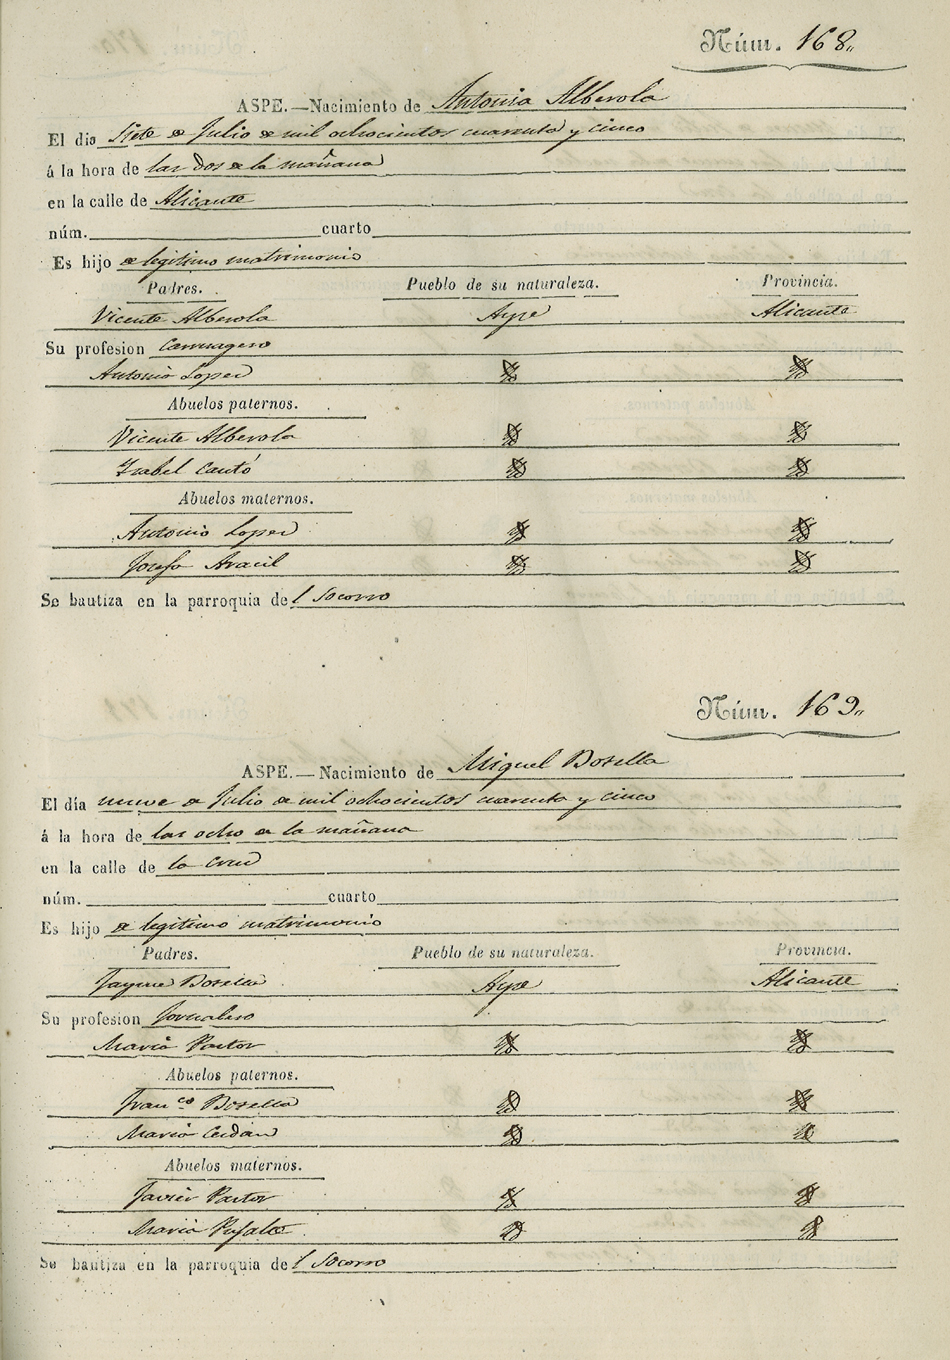 Núm. 168
ASPE.—Nacimiento de Antonia Alberola
El dia siete de Julio de mil ochocientos cuarenta y cinco
á la hora de las dos de la mañana
en la calle de Alicante
núm. cuarto
Es hijo de legitimo matrimonio
Padres. Pueblo de su naturaleza. Provincia.
Vicente Alberola Aspe Alicante
Su profesion Carruagero
Antonia Lopez
Abuelos paternos.
Vicente Alberola
Isabel Cantó
Abuelos maternos.
Antonio Lopez
Josefa Aracil
Se bautiza en la parroquia del Socorro
Núm. 169
ASPE.—Nacimiento de Miguel Botella
El día nueve de Julio de mil ochocientos cuarenta y cinco
á la hora de las ocho de la mañana
en la calle de la Cruz
núm. cuarto
Es hijo de legitimo matrimonio
Padres. Pueblo de su naturaleza. Provincia.
Jayme Botella Aspe Alicante
Su profesion Jornalero
Maria Pastor
Abuelos paternos.
Franco Botella
Maria Cerdan
Abuelos maternos.
Javier Pastor
Maria Pujalte
Se bautiza en la parroquia del Socorro